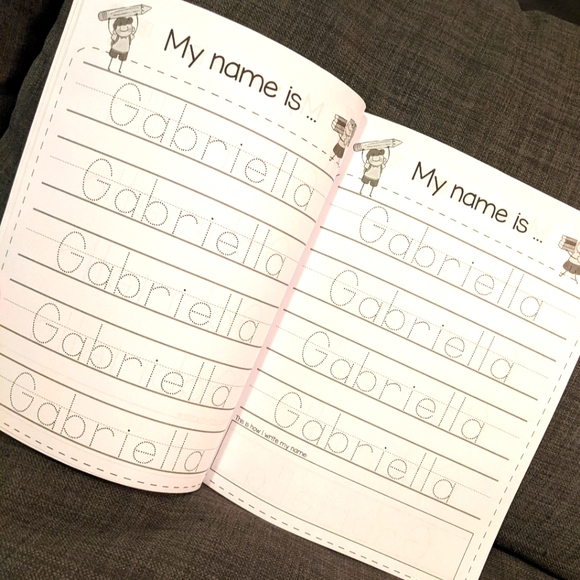 My name is ...
Gabriella
Gabriella
Gabriella
Gabriella
Gabriella
My name is ...
Gabriella
Gabriella
Gabriella
Gabriella
This is how I write my name.